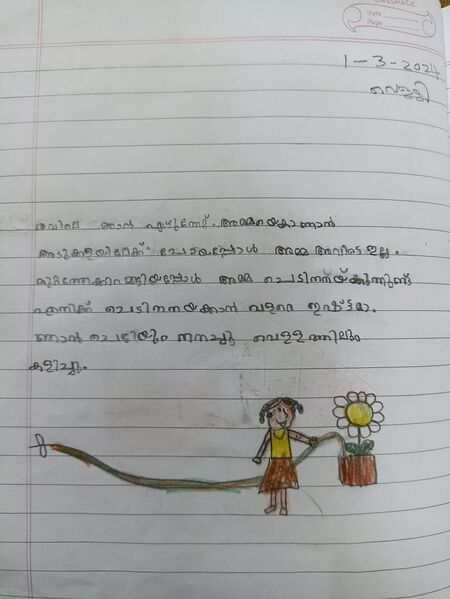 classmate
Date
Page
1-3-2024
വെള്ളി
രാവിലെ ഞാൻ എഴുന്നേറ്റ് അമ്മയെകാണാൻ
അടുക്കളയിലേക്ക് പോയപ്പോൾ അമ്മ അവിടെ ഇല്ല.
മുറ്റത്തേക്കിറങ്ങിയപ്പോൾ അമ്മ ചെടിനനയ്ക്കുന്നുണ്ട്
എനിക്ക് ചെടിനനയക്കാൻ വളരെ ഇഷ്ട്ടമാ.
ഞാൻ ചെടിയും നനച്ചു വെള്ളത്തിലും
കളിച്ചു.